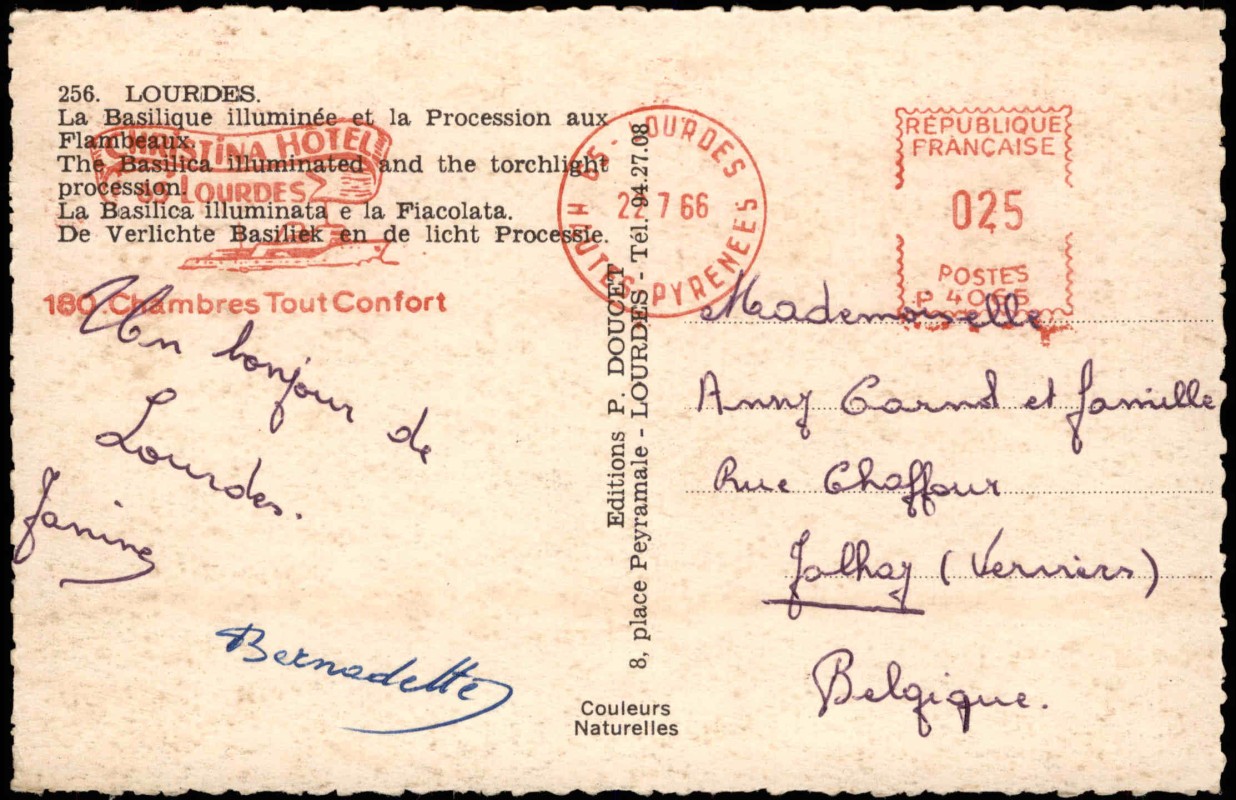 256. LOURDES.
La Basilique illuminée et la Procession aux
Flambeaux.
The Basilica illuminated and the torchlight
procession.
La Basilica illuminata e la Fiacolata.
De Verlichte Basiliek en de licht Processie.
CHRISTINA HÔTEL
65 LOURDES
180 Chambres Tout Confort
65 - LOURDES
22 7 66
HAUTES PYRENEES
RÉPUBLIQUE
FRANÇAISE
025
POSTES
P 4066
Un bonjour de
Lourdes.
Janine
Bernadette
Editions P. DOUCET
8, place Peyramale - LOURDES - Tél. 94.27.08
Couleurs
Naturelles
Mademoiselle
Anny et famille
Rue Chaffour
Jalhay (Verviers)
Belgique.